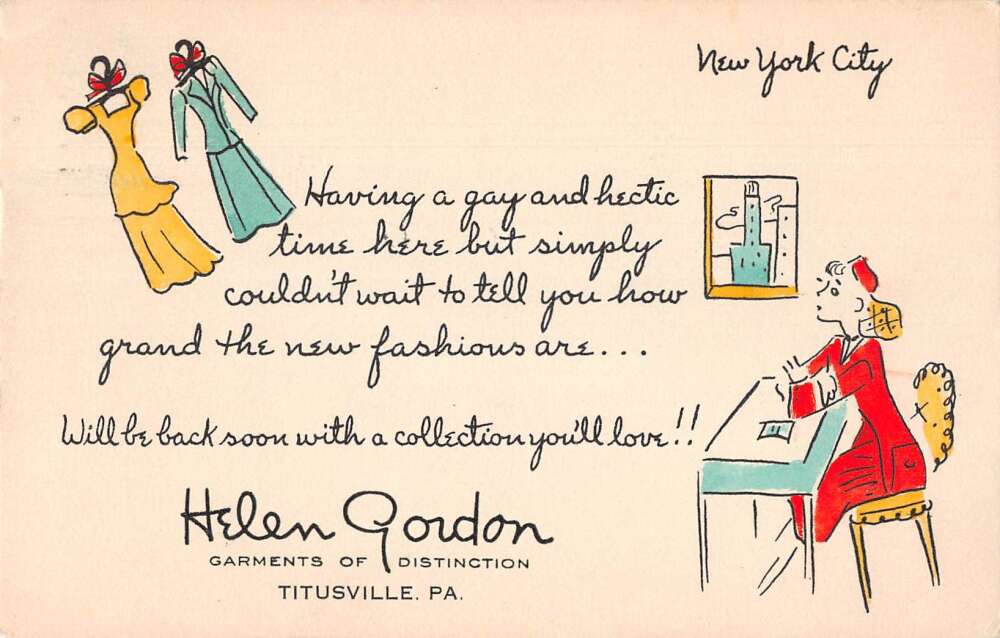 New York City
Having a gay and hectic
time here but simply
couldn't wait to tell you how
grand the new fashions are...
Will be back soon with a collection you'll love!!
Helen Gordon
GARMENTS OF DISTINCTION
TITUSVILLE, PA.